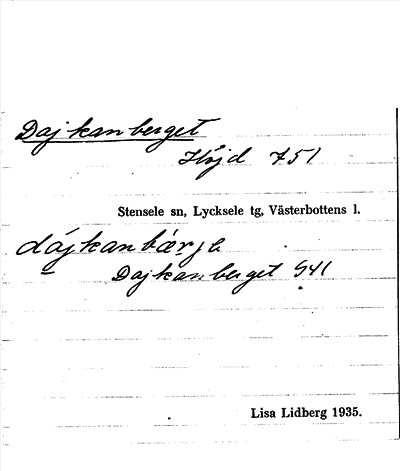 Dajkanberget
Höjd 751
Stensele sn, Lycksele tg, Västerbottens l.
dájkanbærje
Dajkanberget G41
Lisa Lidberg 1935.